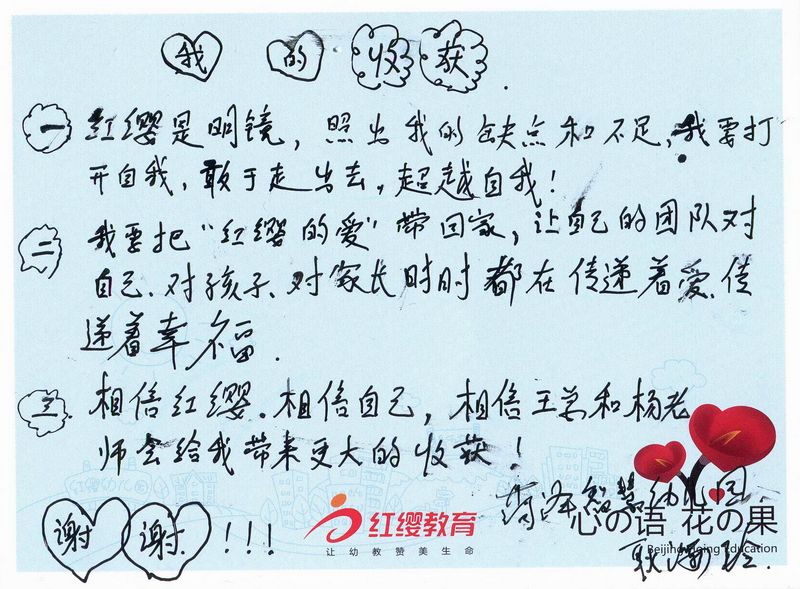 我的收获
一 红缨是明镜，照出我的缺点和不足，我要打
开自我，敢于走出去，超越自我！
二 我要把“红缨的爱”带回家，让自己的团队对
自己、对孩子、对家长时时都在传递着爱、传
递着幸福.
三 相信红缨、相信自己，相信王总和杨老
师会给我带来更大的收获！
菏泽智慧幼儿园
谢谢!!!
红缨教育
让幼教赞美生命
心の语 花の果
Beijing Education